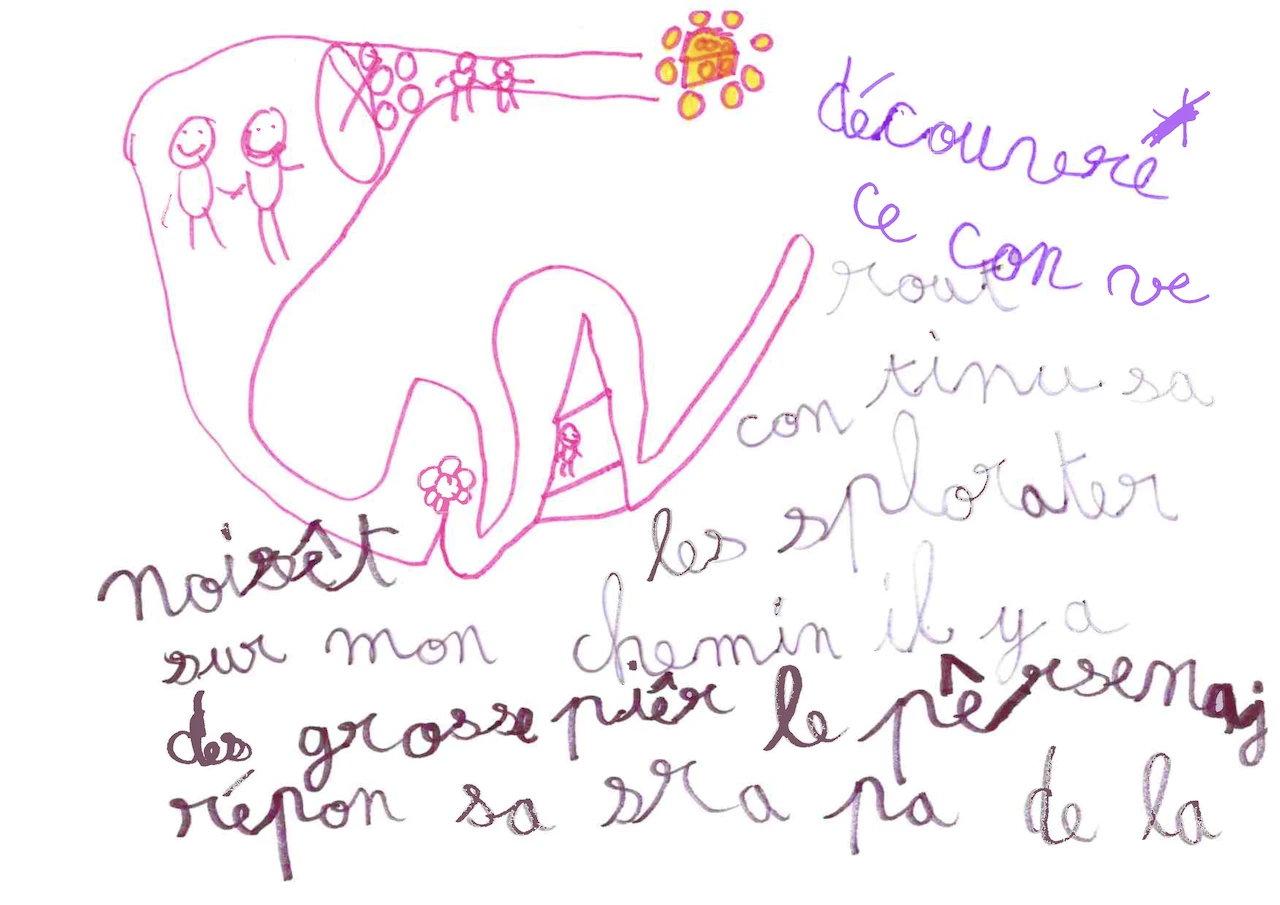 découvere
ce con ve
rout
con tinu sa
les splorater
noisêt
sur mon chemin il y a
des grosse piêr le pêrsenaj
répon sa sra pa de la